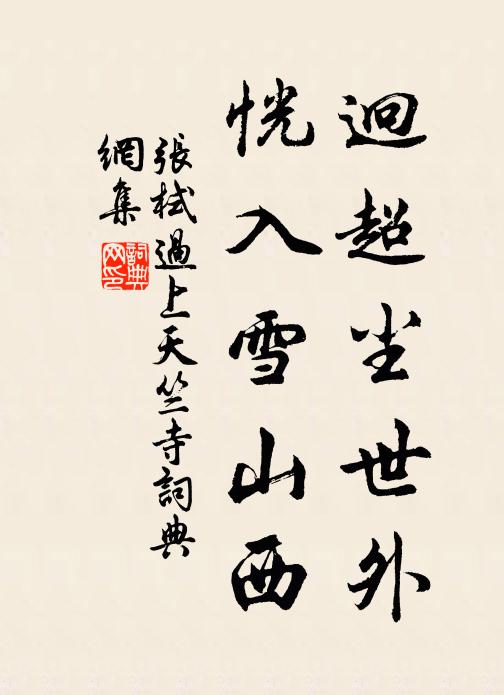 迥超尘世外
恍入雪山西
張栻過上天竺寺詞典
網集
詞典網印